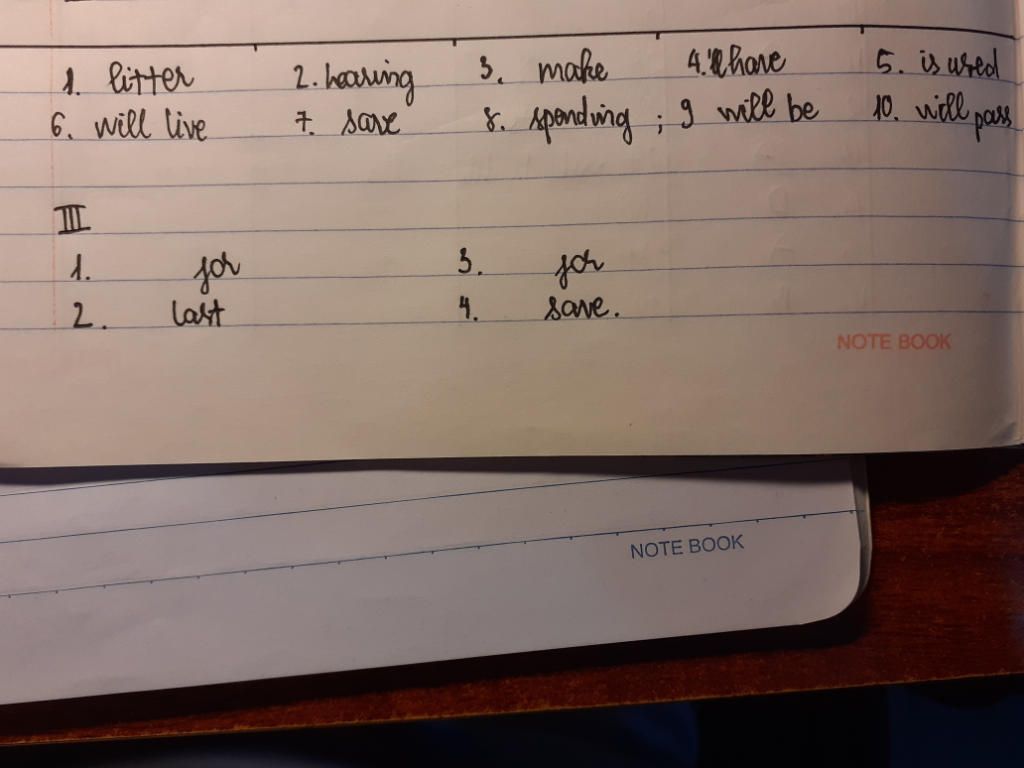 1. litter 2. hearing 3. make 4. 'll have 5. is used
6. will live 7. save 8. spending ; 9 will be 10. will pass
III
1. for 3. for
2. last 4. save.
NOTE BOOK
NOTE BOOK